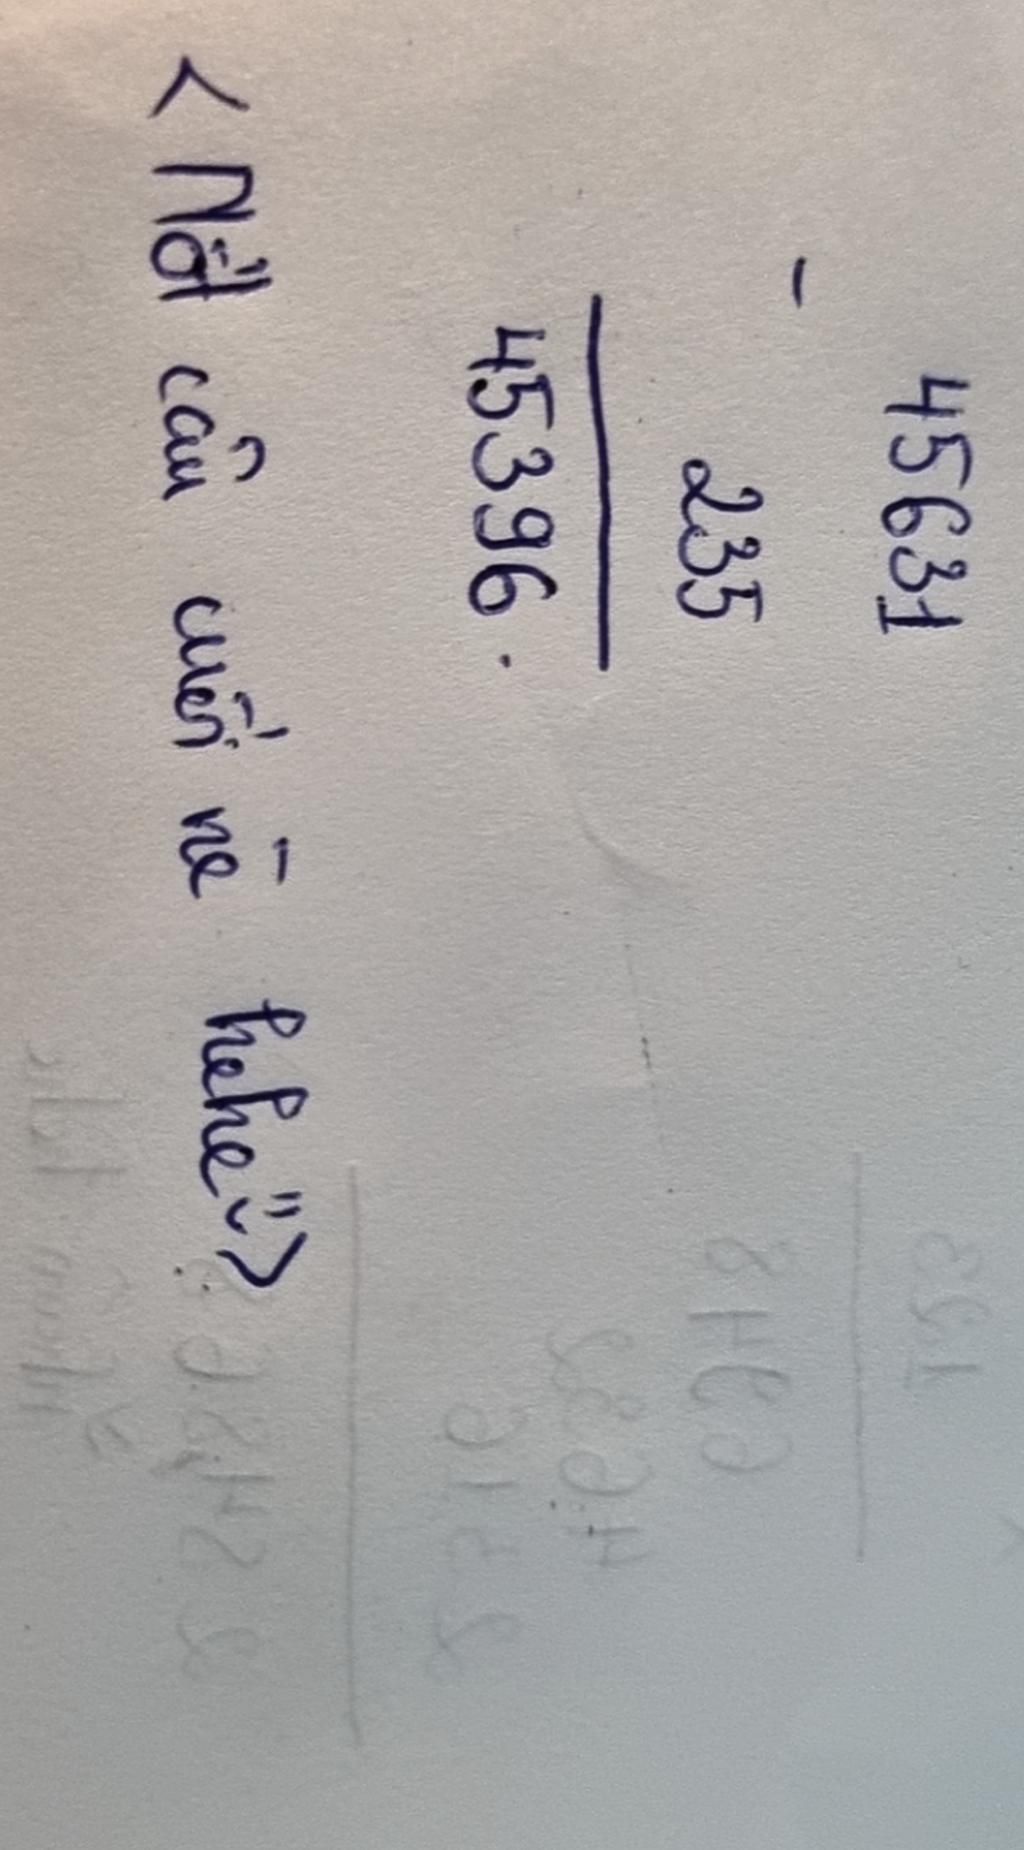 45631
-
235
45396.
< Nốt câu cuối nè hehe >